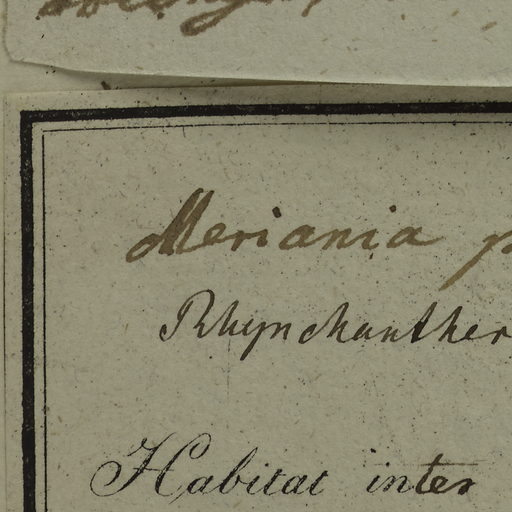 Meriania p
Rhynchanther
Habitat inter